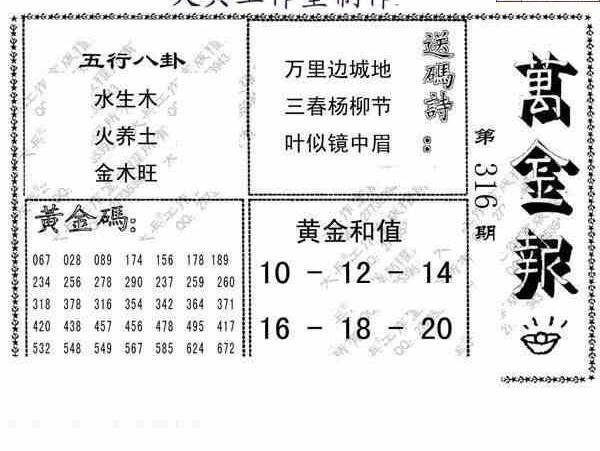 五行八卦
水生木
火养土
金木旺
送碼詩：
万里边城地
三春杨柳节
叶似镜中眉
萬金報
第316期
黃金碼：
067 028 089 174 156 178 189
234 256 278 290 237 259 260
318 378 316 354 342 364 371
420 438 457 456 478 495 417
532 548 549 567 585 624 672
黄金和值
10 - 12 - 14
16 - 18 - 20